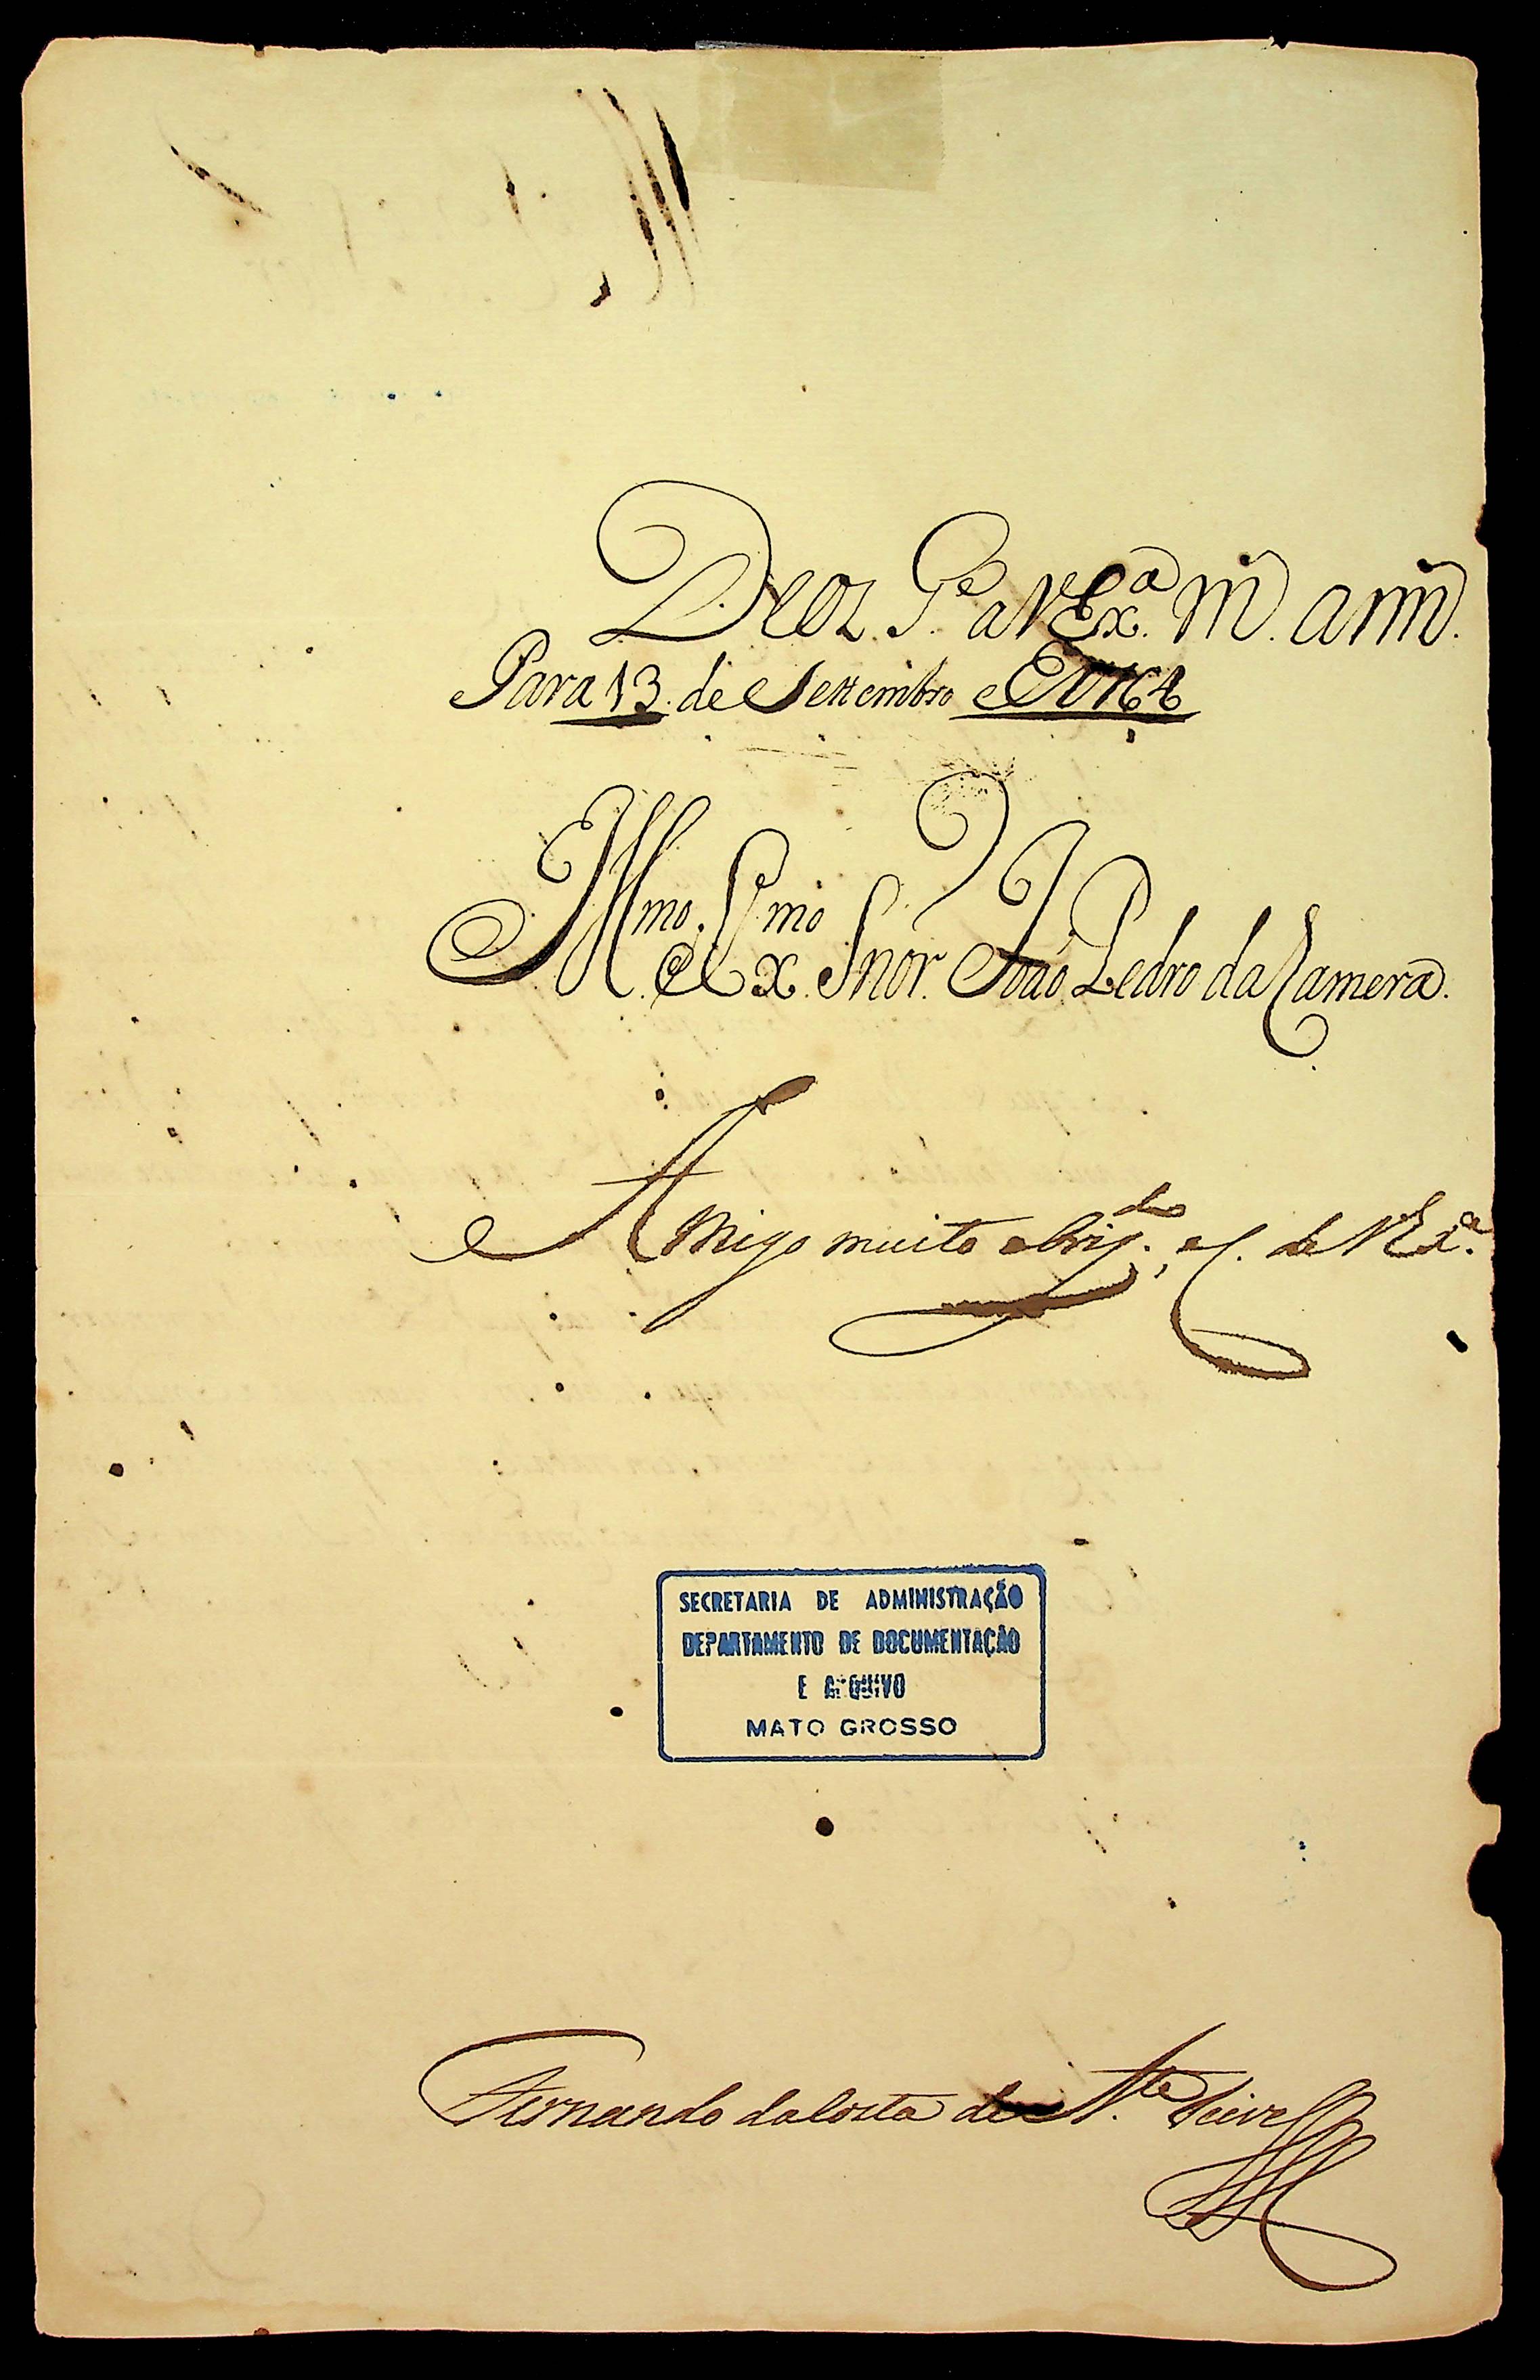 Deos G.e a V Ex.a m. ann.
Para 13. de Settembro de 1764
Ill.mo e Ex.mo Snor. João Pedro da Camera.
Amigo muito obrig.do e C. de V Ex.a
SECRETARIA DE ADMINISTRAÇÃO
DEPARTAMENTO DE DOCUMENTAÇÃO
E ARQUIVO
MATO GROSSO
Fernando da Costa de At.de Teive